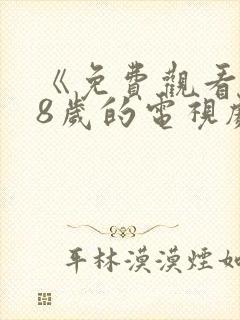 《免費觀看
8歲的電視
平林漠漠煙如